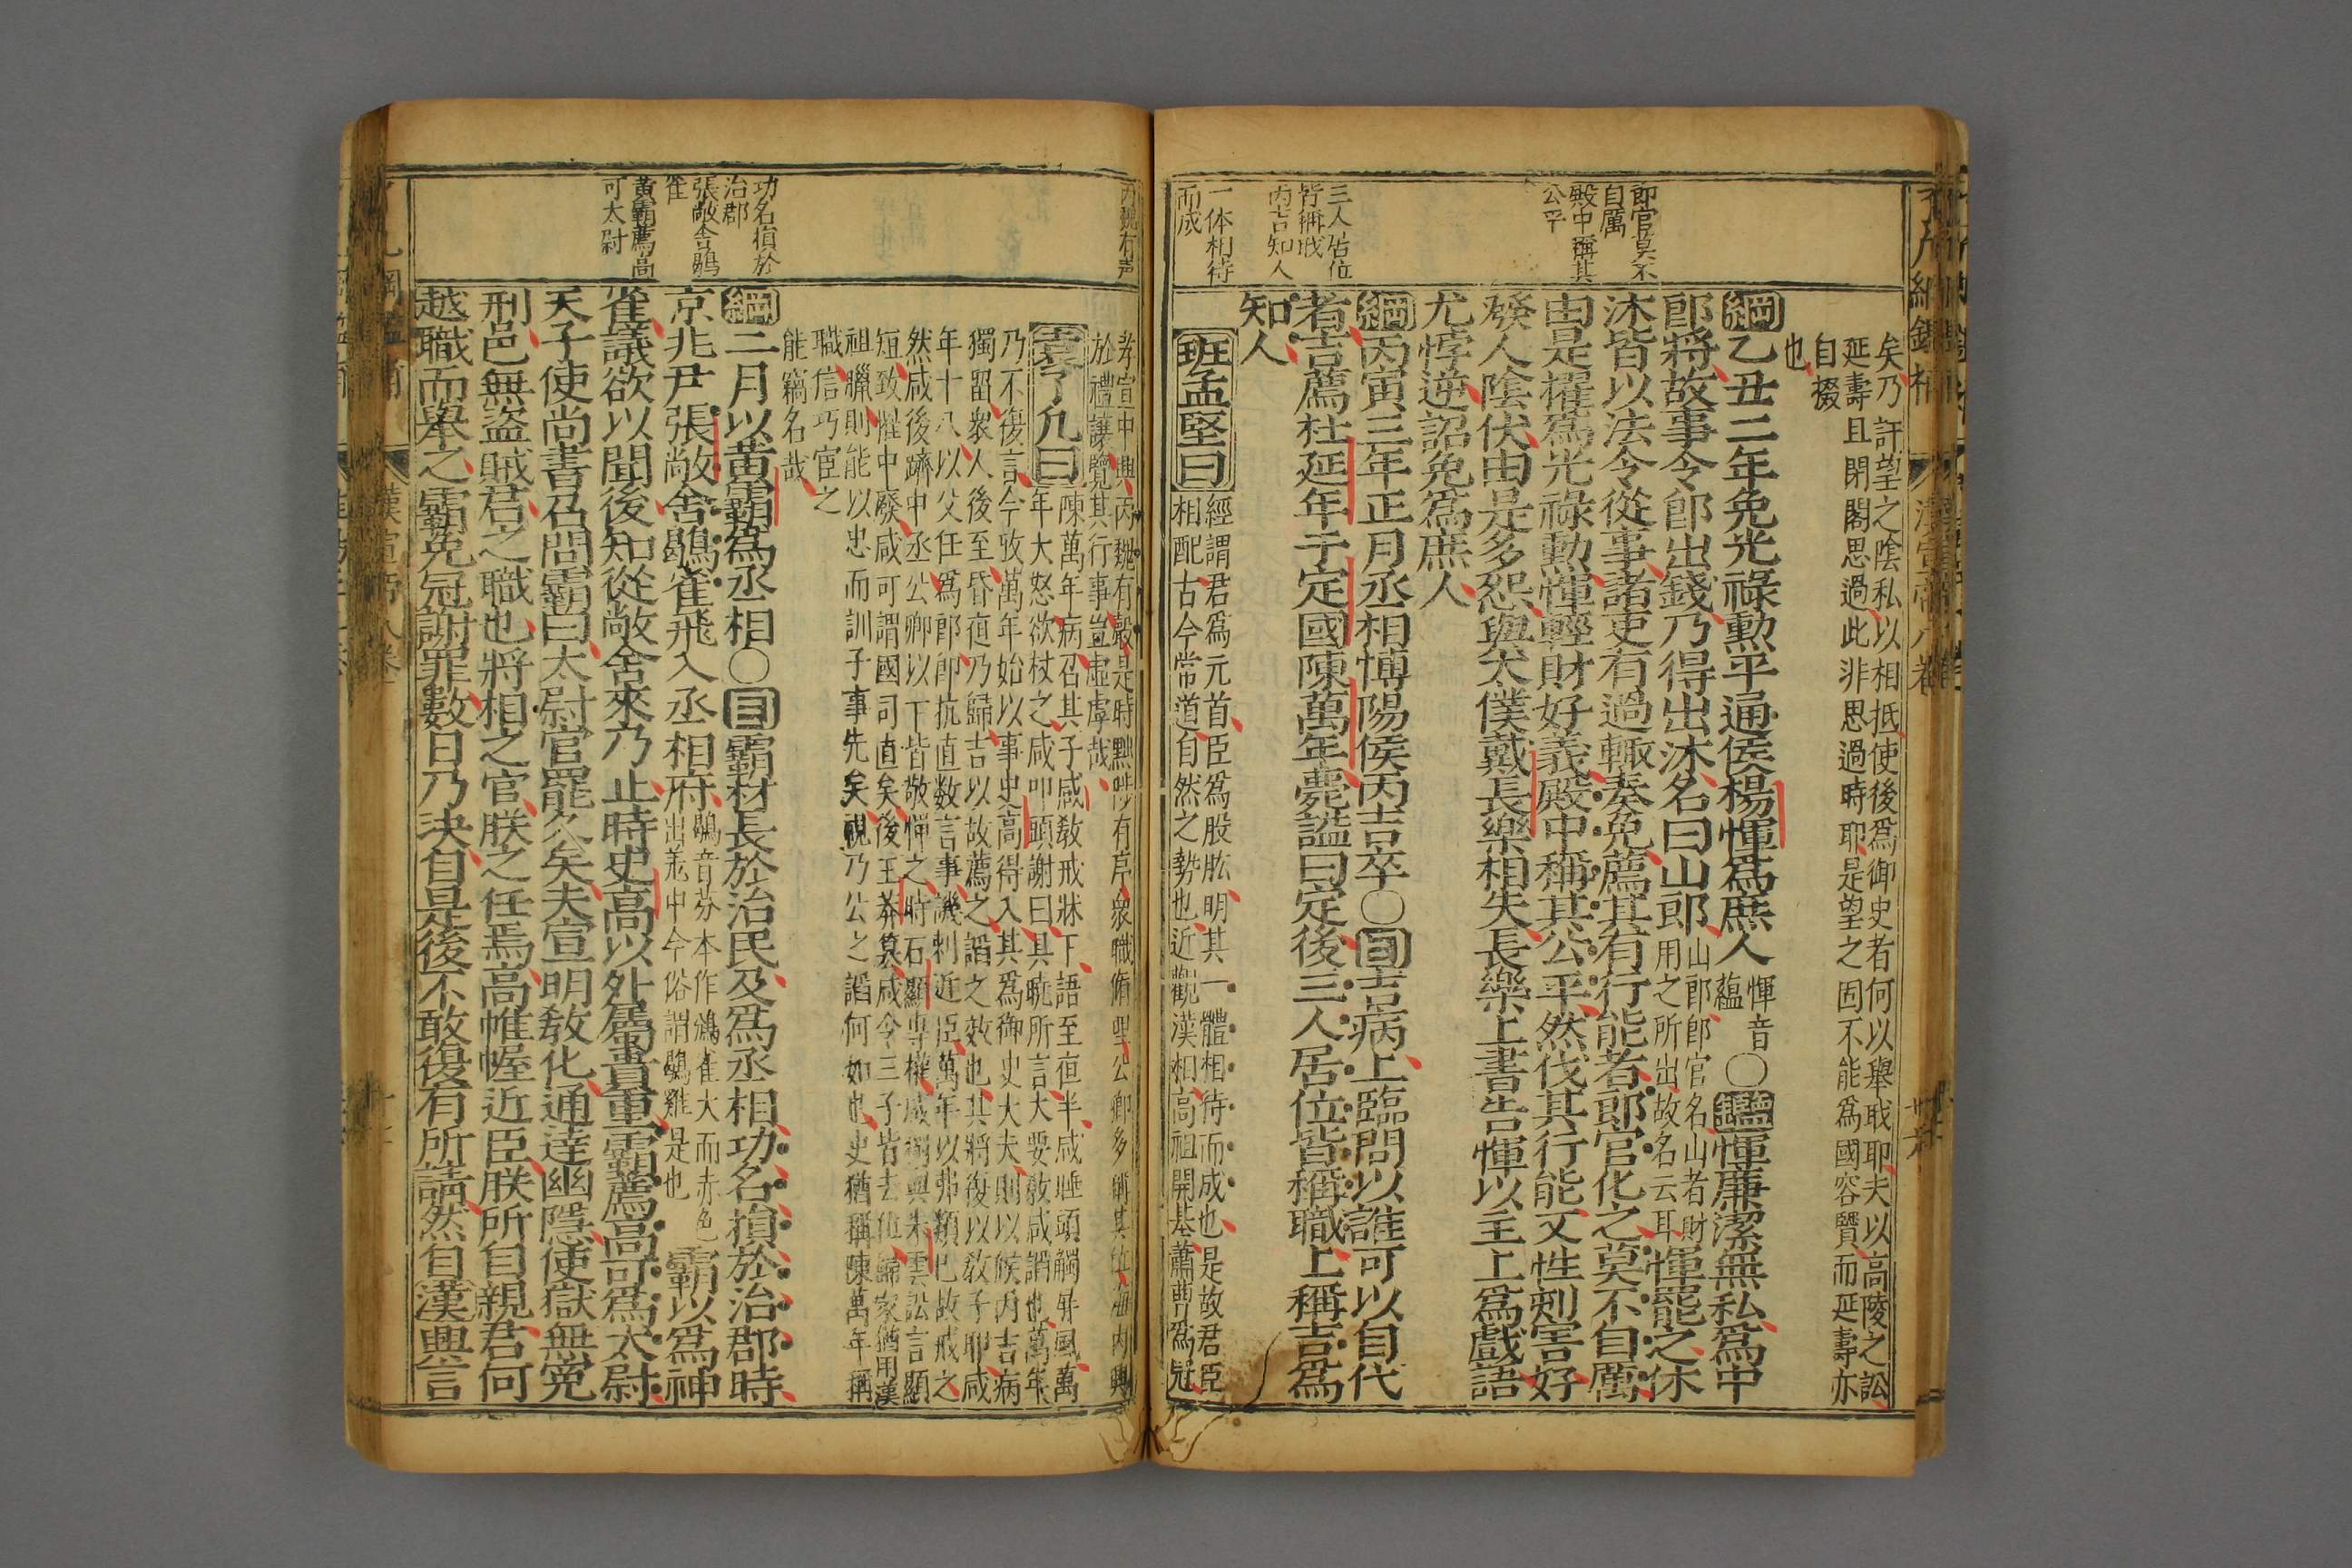 郎官莫不
自厲
殿中稱其
公平
三人居位
皆稱職
丙吉知人
一体相待
而成
矣乃訐望之陰私以相抵使後爲御史者何以舉職耶夫以高陵之訟
延壽且閉閣思過此非思過時耶是望之固不能爲國容賢而延壽亦
自掇
也
綱乙丑二年免光祿勲平通侯楊惲爲庶人惲音蘊○鑑惲廉潔無私爲中
郎將故事令郎出錢乃得出沐名曰山郎山郎郎官名山者財用之所出故名云耳惲罷之休
沐皆以法令從事諸吏有過輙奏免薦其有行能者郎官化之莫不自厲
由是擢爲光祿勲惲輕財好義殿中稱其公平然伐其行能又性刻害好
發人陰伏由是多怨與太僕戴長樂相失長樂上書告惲以主上爲戲語
尤悖逆詔免爲庶人
綱丙寅三年正月丞相博陽侯丙吉卒○目吉病上臨問以誰可以自代
者吉薦杜延年于定國陳萬年薨謚曰定後三人居位皆稱職上稱吉爲
知人
班孟堅曰經謂君爲元首臣爲股肱明其一體相待而成也是故君臣
相配古今常道自然之勢也近觀漢相高祖開基蕭曹爲冠
丙魏有声
功名損於
治郡
張敞舍鶡
雀
黃霸薦高
可太尉
孝宣中興丙魏有聲是時黜陟有序衆職脩理公卿多稱其位海內興
於禮讓覽其行事豈虛虖哉
袁了凡曰陳萬年病召其子咸敎戒牀下語至夜半咸睡頭觸屛風萬
年大怒欲杖之咸叩頭謝曰具曉所言大要敎咸謟也萬年
乃不復言今攷萬年始以事史高得入其爲御史大夫則以候丙吉病
獨留衆人後至昏夜乃歸吉以故薦之謟之效也其將復以敎子耶咸
年十八以父任爲郎郎抗直数言事譏刺近臣萬年以弗類已故戒之
然咸後躋中丞公卿以下皆敬憚之時石顯專權咸獨與朱雲訟言顯
短致罹中廢咸可謂國司直矣後王莽簒咸令三子皆去位歸家猶用漢
祖臘則能以忠而訓子事先矣視乃公之謟何如也史猶稱陳萬年稱
職信巧宦之
能竊名哉
綱二月以黃霸爲丞相○目霸材長於治民及爲丞相功名損於治郡時
京兆尹張敞舍鶡雀飛入丞相府鶡音芬本作鳻雀大而赤色出羌中今俗謂鶡雞是也霸以爲神
雀議欲以聞後知從敞舍來乃止時史高以外屬貴重霸薦高可爲太尉
天子使尚書召問霸曰太尉官罷久矣夫宣明敎化通達幽隱使獄無寃
刑邑無盜賊君之職也將相之官朕之任焉高帷幄近臣朕所自親君何
越職而舉之霸免冠謝罪數日乃決自是後不敢復有所請然自漢興言